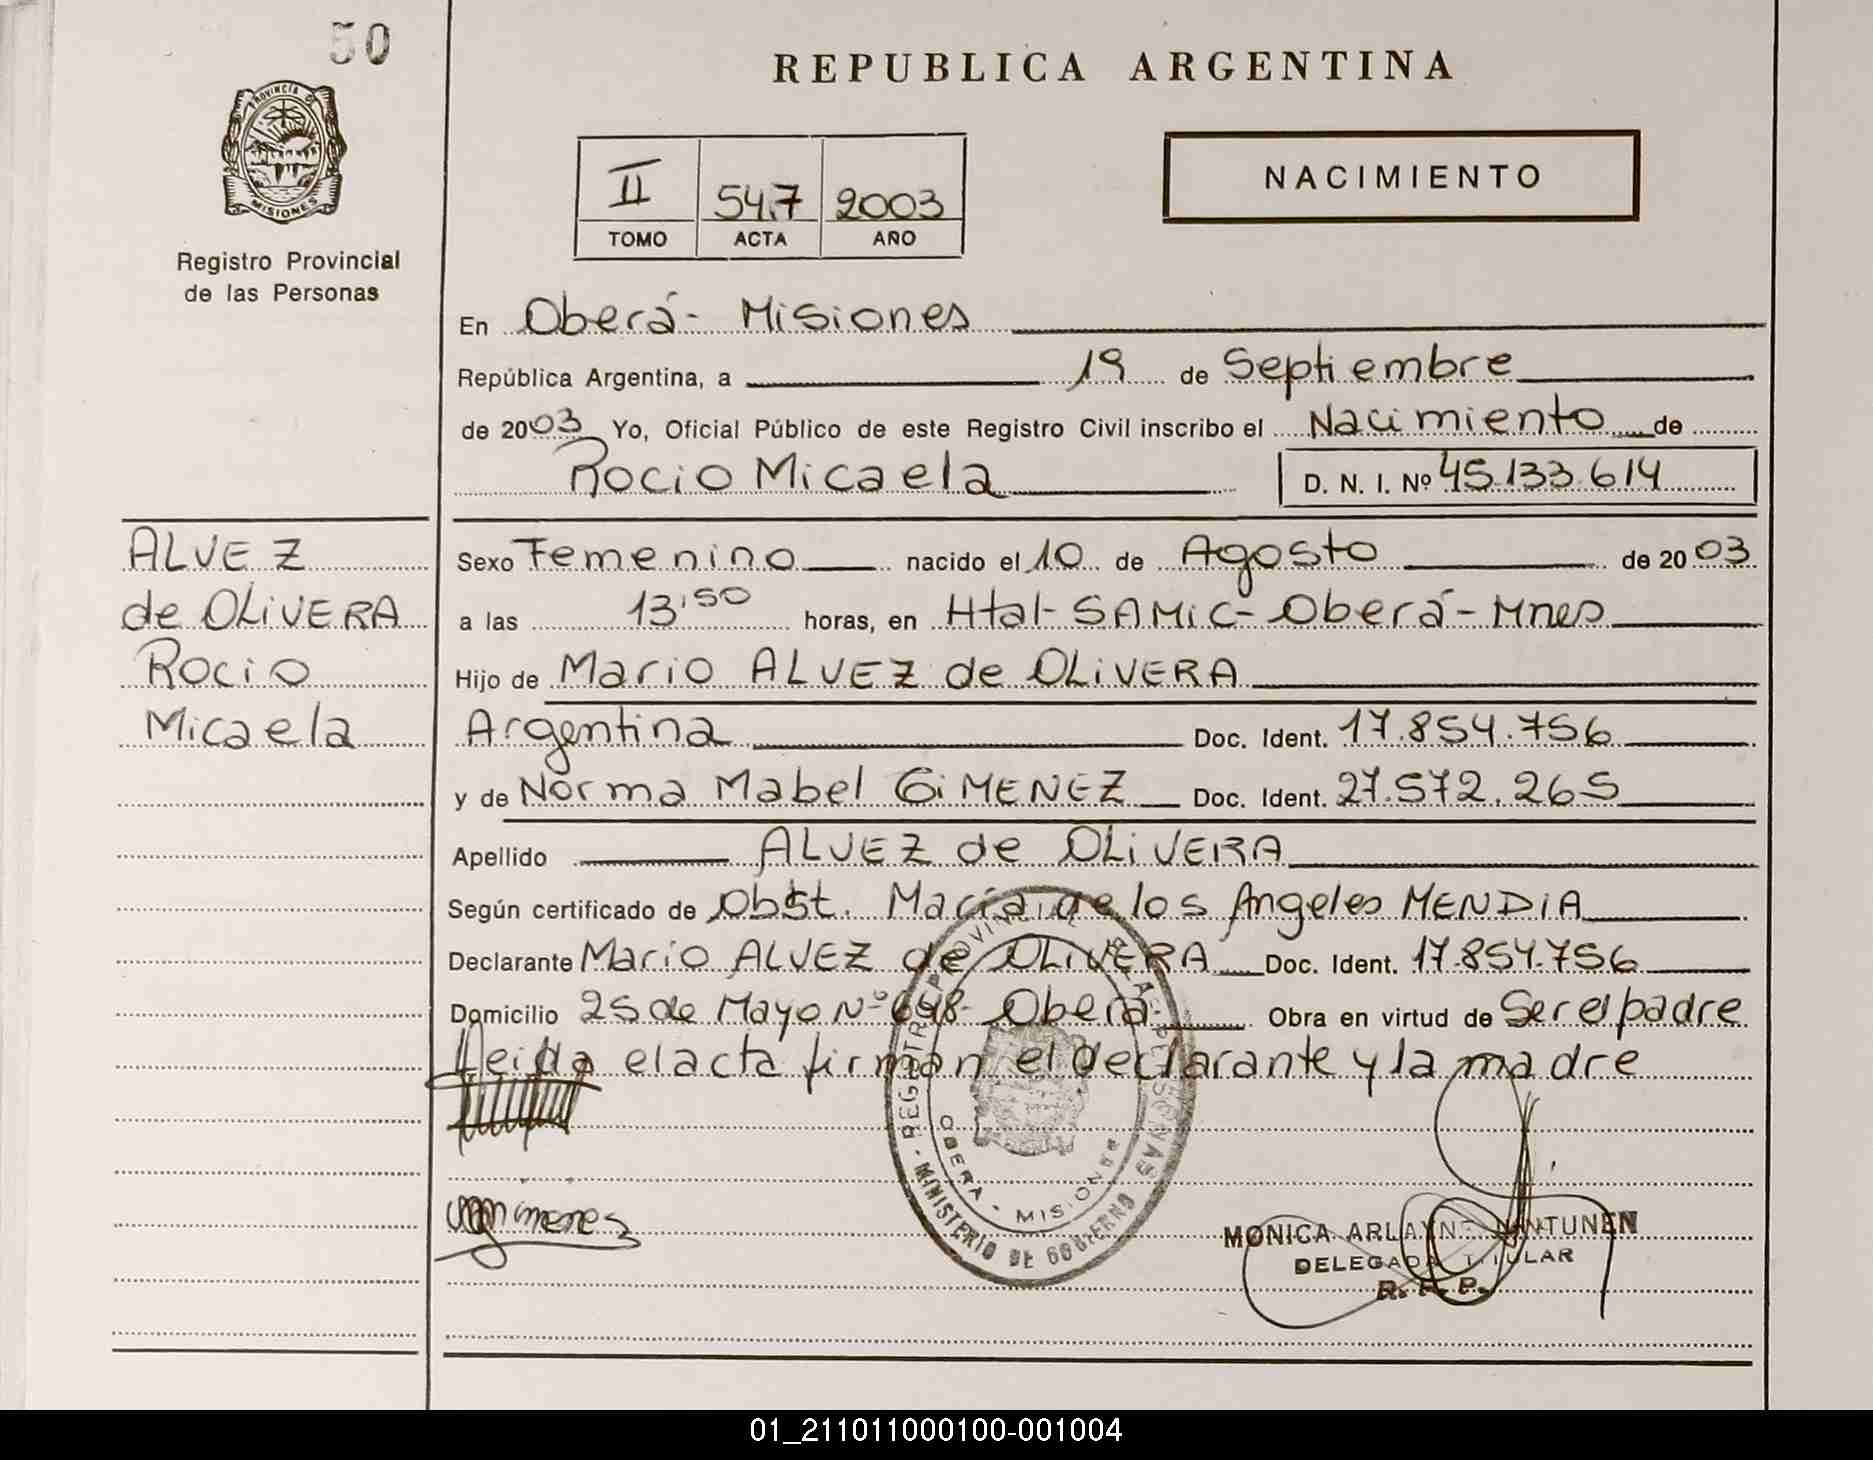 50
PROVINCIA DE
MISIONES
Registro Provincial
de las Personas
REPUBLICA ARGENTINA
II 547 2003
TOMO ACTA AÑO
NACIMIENTO
En Oberá - Misiones
República Argentina, a 19 de Septiembre
de 2003 Yo, Oficial Público de este Registro Civil inscribo el Nacimiento de
Rocio Micaela D. N. I. Nº 45.133.614
ALVEZ
de OLiVERA
Rocio
Micaela
Sexo Femenino nacido el 10 de Agosto de 2003
a las 13,50 horas, en Htal - SAMiC - Oberá - Mnes
Hijo de Mario ALVEZ de OLiVERA
Argentina Doc. Ident. 17.854.756
y de Norma Mabel GiMENEZ Doc. Ident. 27.572.265
Apellido ALVEZ de OLiVERA
Según certificado de Obst. María de los Angeles MENDiA
Declarante Mario ALVEZ de OLiVERA Doc. Ident. 17.854.756
Domicilio 25 de Mayo Nº 698 - Oberá Obra en virtud de Ser el padre
Leida el acta firman el declarante y la madre
REGISTRO PROVINCIAL DE LAS PERSONAS
OBERA - MISIONES
- MINISTERIO DE GOBIERNO
MONICA ARLAYNE ANTUNEN
DELEGADA TITULAR
R. P. P.
01_211011000100-001004